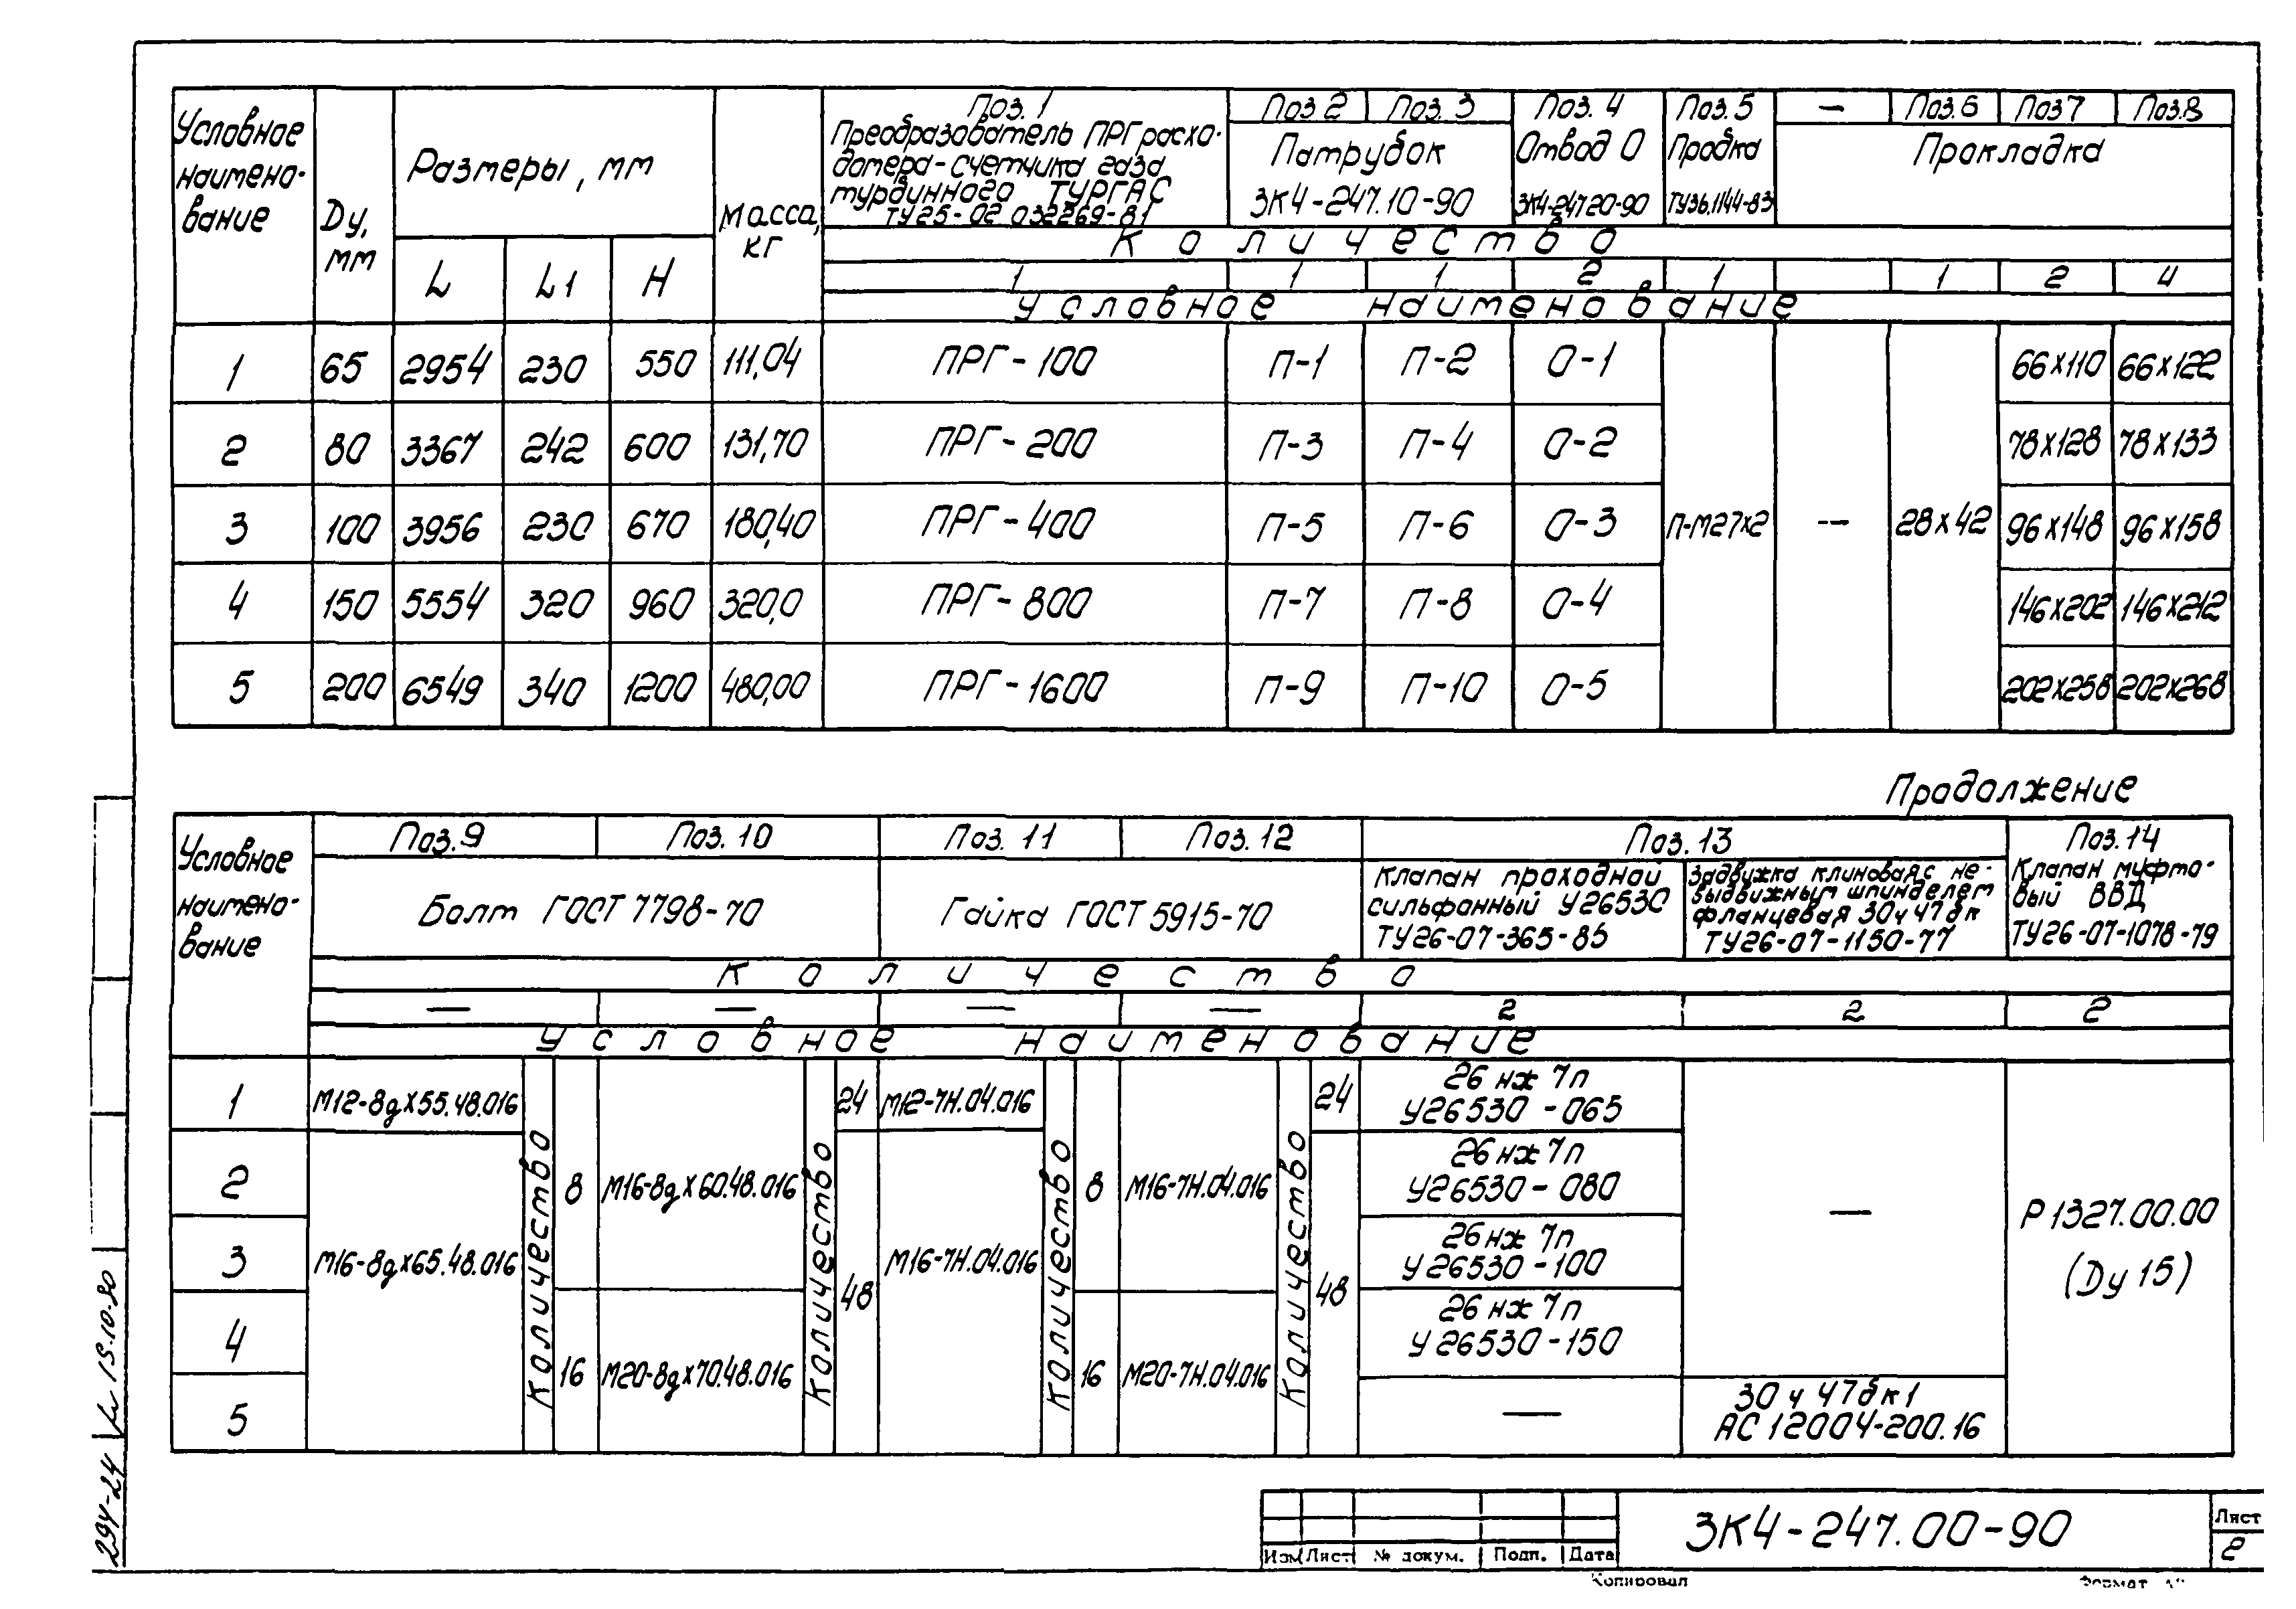 Условное наименование
Dу, мм
Размеры, мм
L
L1
H
масса, кг
Поз. 1
Преобразователь ПРГ расхо-
домера-счетчика газа
турбинного ТУРГАС
ТУ25-02.032269-81
Поз 2
Поз. 3
Патрубок
ЗК4-247.10-90
Поз. 4
Отвод О
ЗК4-247.20-90
Поз. 5
Пробка
ТУ36.1144-83
—
Поз. 6
Поз 7
Поз. 8
Прокладка
Количество
1 1 1 2 1 1 2 4
Условное наименование
1 65 2954 230 550 111,04 ПРГ-100 П-1 П-2 О-1 66х110 66х122
2 80 3367 242 600 131,70 ПРГ-200 П-3 П-4 О-2 78х128 78х133
3 100 3956 230 670 180,40 ПРГ-400 П-5 П-6 О-3 П-М27х2 — 28х42 96х148 96х158
4 150 5554 320 960 320,0 ПРГ-800 П-7 П-8 О-4 146х202 146х212
5 200 6549 340 1200 480,00 ПРГ-1600 П-9 П-10 О-5 202х258 202х268
Продолжение
Условное
наимено-
вание
Поз. 9
Поз. 10
Болт ГОСТ 7798-70
Поз. 11
Поз. 12
Гайка ГОСТ 5915-70
Поз. 13
Клапан проходной
сильфонный У26530
ТУ26-07-365-85
Задвижка клиновая с не-
выдвижным шпинделем
фланцевая 30ч47бк
ТУ26-07-1150-77
Поз. 14
Клапан муфто-
вый ВВД
ТУ26-07-1078-79
Количество
— — — — 2 2 2
Условное наименование
1
2
3
4
5
М12-8gх55.48.016
М16-8gх65.48.016
Количество
8
16
М16-8gх60.48.016
М20-8gх70.48.016
Количество
24
48
М12-7Н.04.016
М16-7Н.04.016
Количество
8
16
М16-7Н.04.016
М20-7Н.04.016
Количество
24
48
26 нж 7п
У26530-065
26 нж 7п
У26530-080
26 нж 7п
У26530-100
26 нж 7п
У26530-150
—
—
30 ч 47бк1
АС 12004-200.16
Р 1327.00.00
(Dу 15)
294-24
15.10.90
Изм
Лист
№ докум.
Подп.
Дата
ЗК4-247.00-90
Лист
2
Копировал
Формат